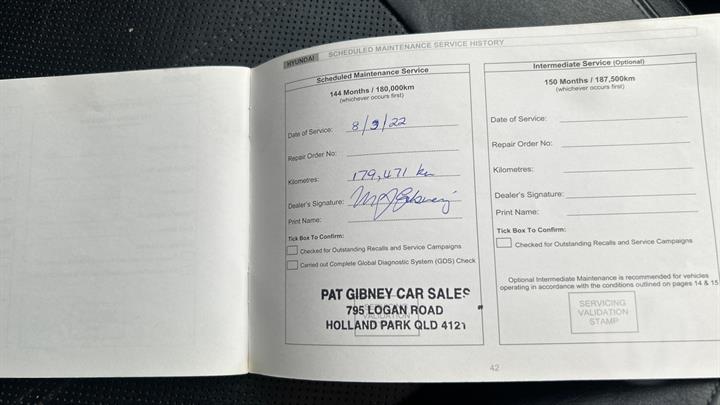 HYUNDAI SCHEDULED MAINTENANCE SERVICE HISTORY
Scheduled Maintenance Service
144 Months / 180,000km
(whichever occurs first)
Date of Service: 8/3/22
Repair Order No:
Kilometres: 179,471 km
Dealer's Signature:
Print Name:
Tick Box To Confirm:
Checked for Outstanding Recalls and Service Campaigns
Carried out Complete Global Diagnostic System (GDS) Check
PAT GIBNEY CAR SALES
795 LOGAN ROAD
HOLLAND PARK QLD 4121
Intermediate Service (Optional)
150 Months / 187,500km
(whichever occurs first)
Date of Service:
Repair Order No:
Kilometres:
Dealer's Signature:
Print Name:
Tick Box To Confirm:
Checked for Outstanding Recalls and Service Campaigns
Optional Intermediate Maintenance is recommended for vehicles
operating in accordance with the conditions outlined on pages 14 & 15
SERVICING
VALIDATION
STAMP
42